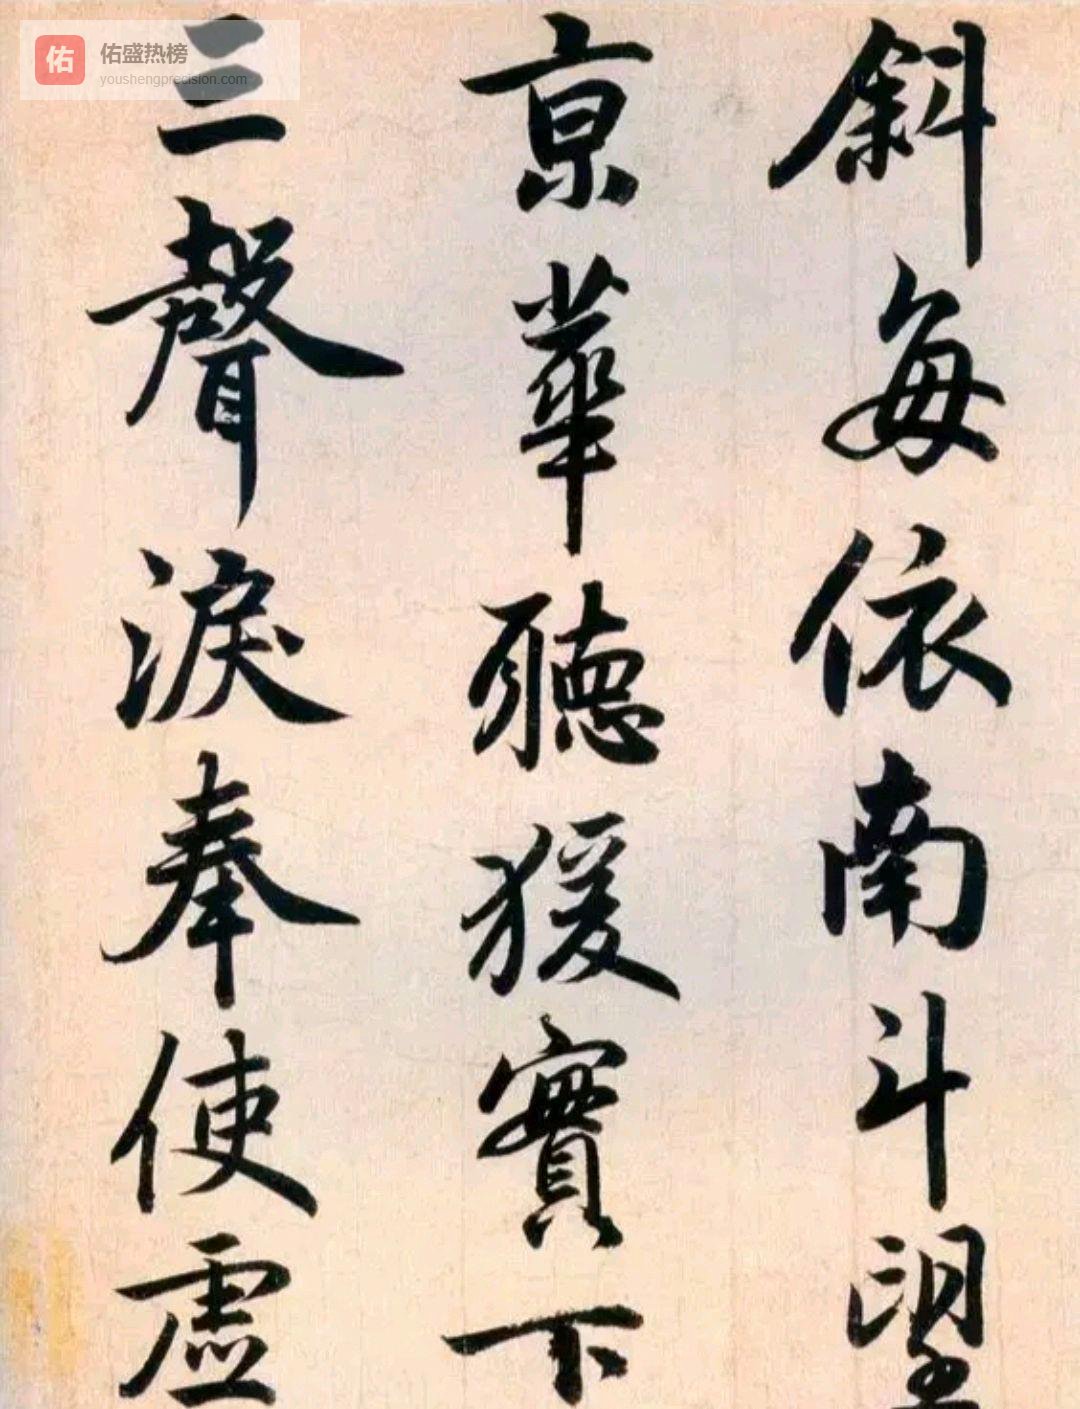 斜每依南斗望
京華聽猨實下
三聲淚奉使虛
佑
佑盛热榜
youshengprecision.com